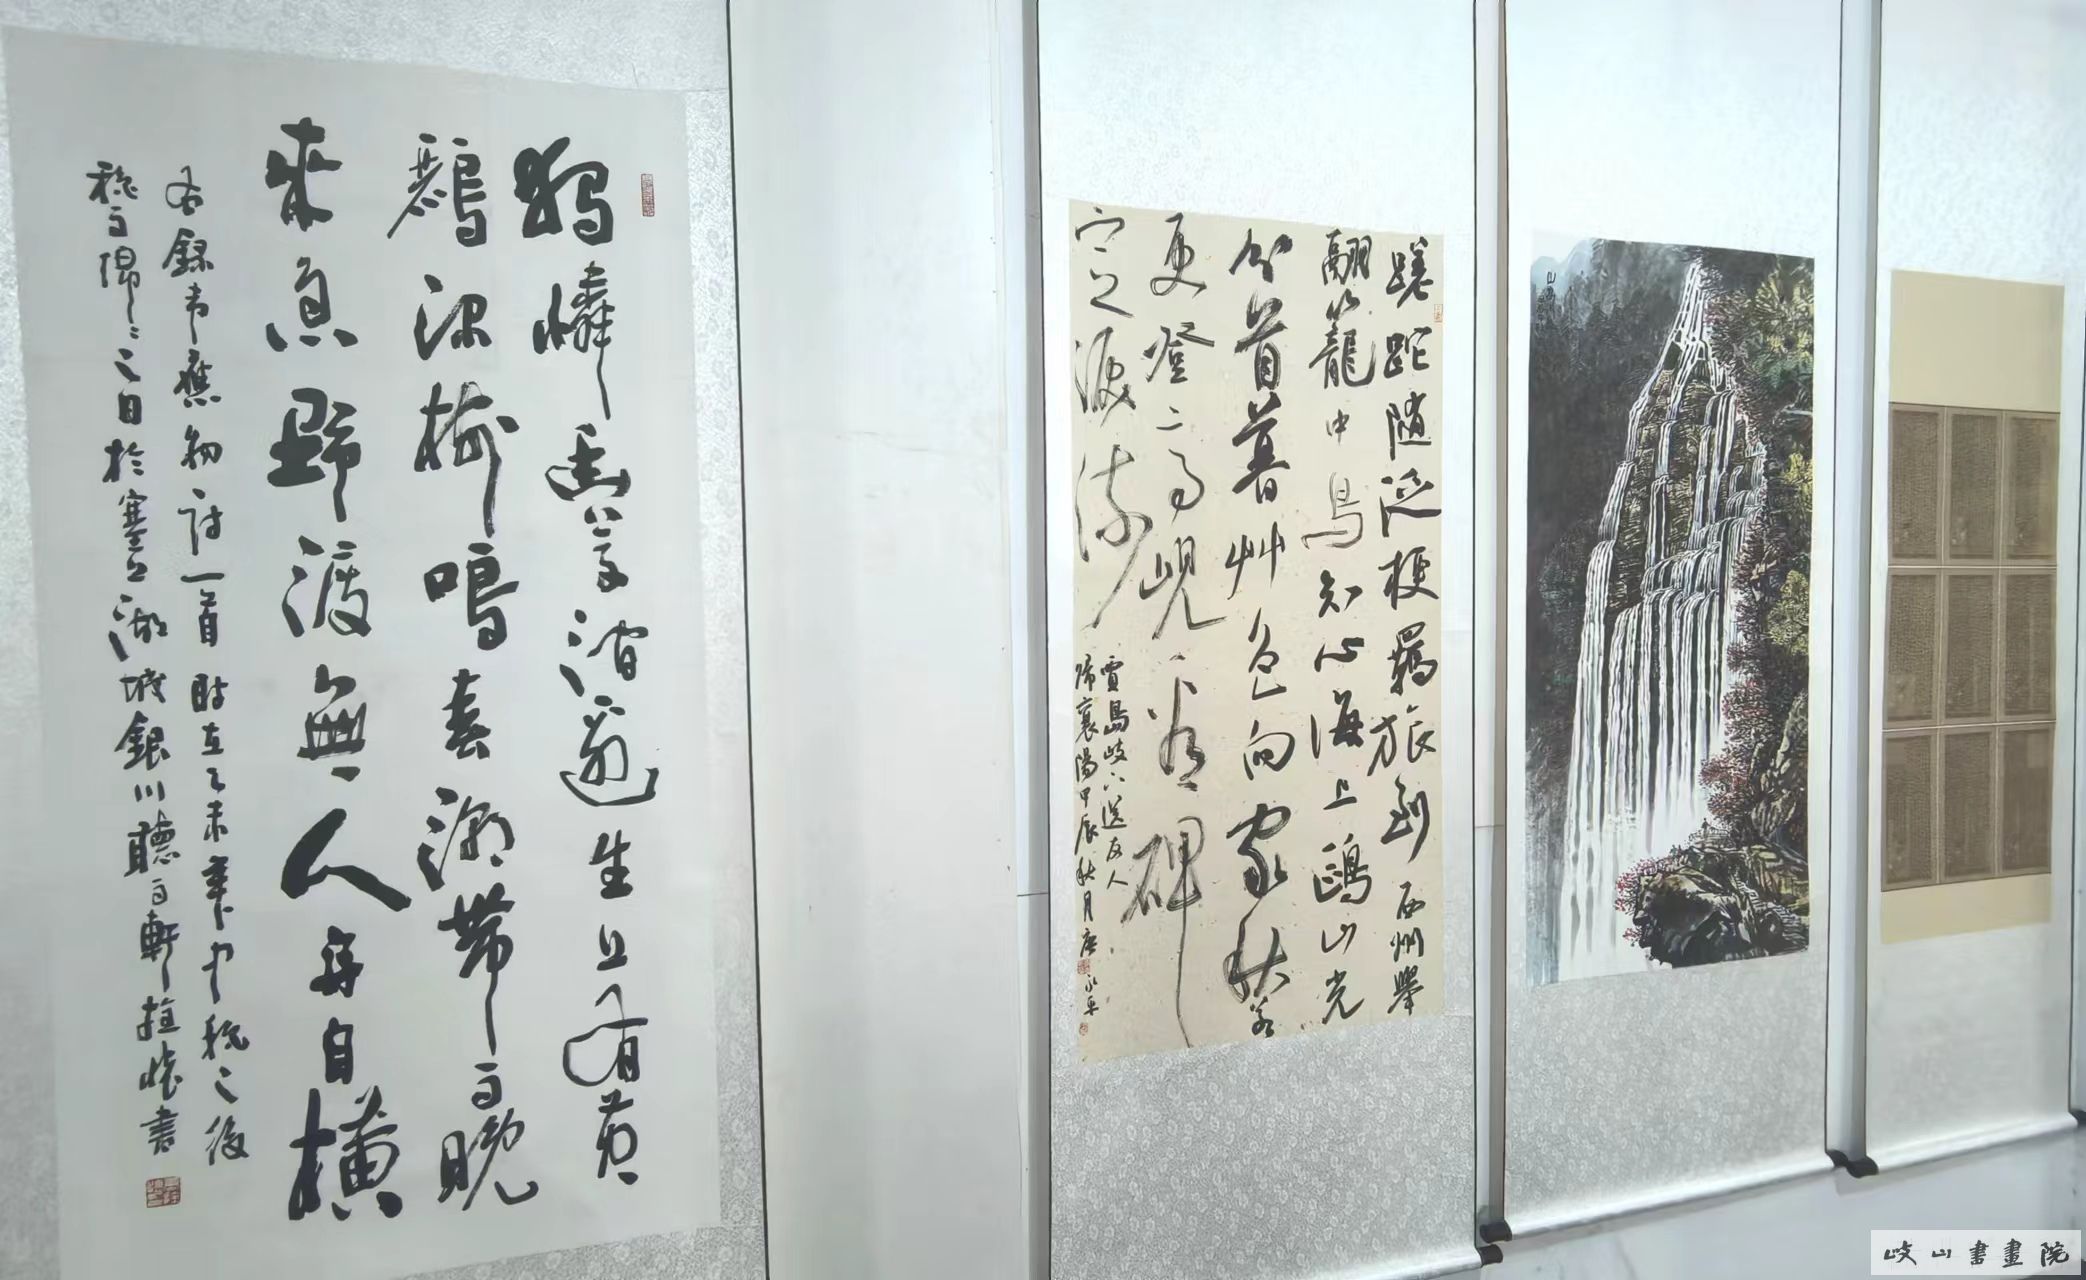 獨憐幽草澗邊生上有黄
鸝深樹鳴春潮帶雨晚
來急野渡無人舟自横
右録韋應物詩一首時在乙未年中秋之後
秋雨綿綿之日於塞上湖城銀川聽雨軒拴懷書
蹉跎隨泛梗羈旅到西州舉
翮籠中鳥知心海上鷗山光
分首暮艸色向家秋若
更登高峴看碑
定淚流
賈島岐下送友人
歸襄陽甲辰秋月唐永平
岐山書畫院